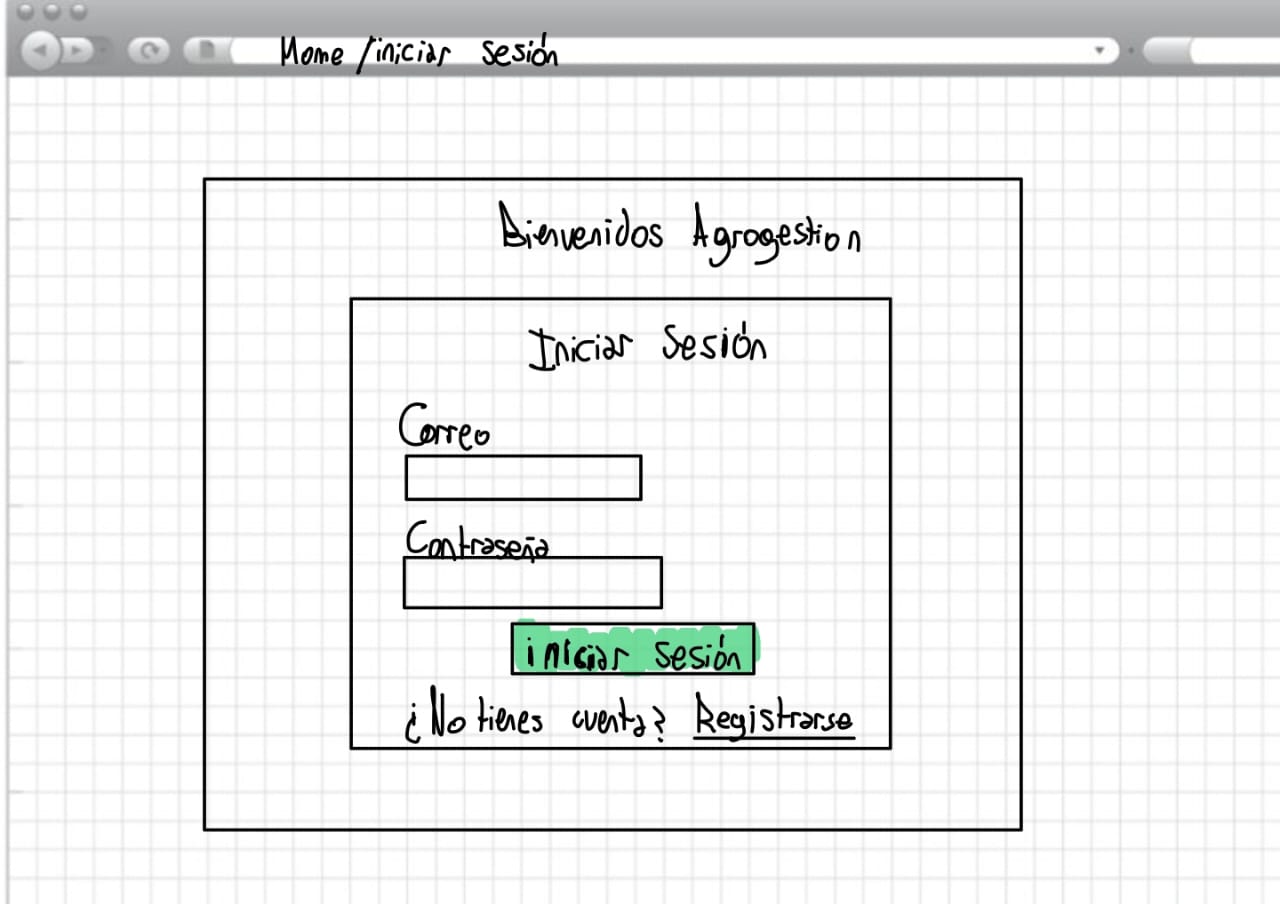 Home /iniciar sesión
Bienvenidos Agrogestion
Iniciar Sesión
Correo
Contraseña
iniciar sesión
¿No tienes cuenta? Registrarse